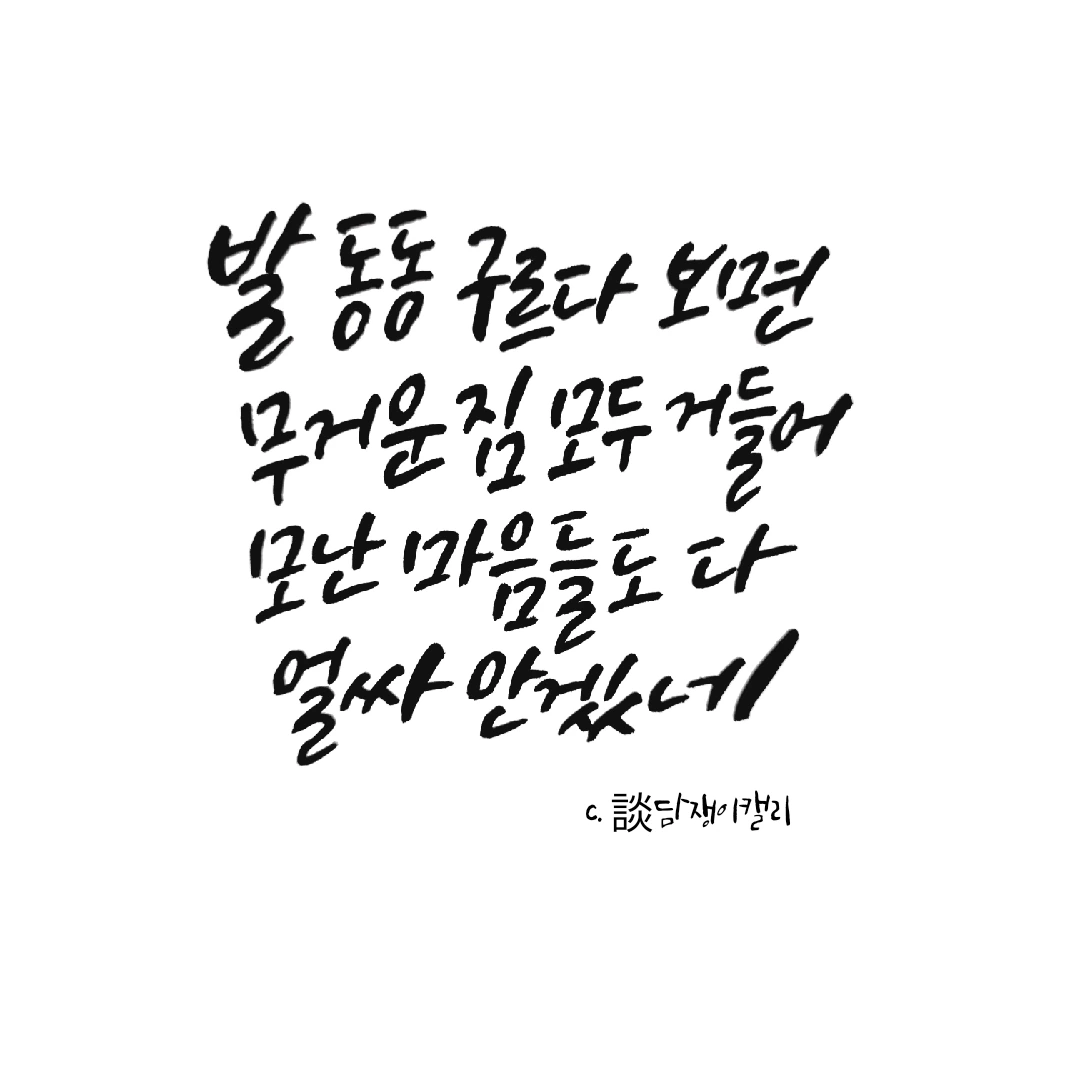 발 동동 구르다 보면
무거운 짐 모두 거들어
모난 마음들도 다
얼싸 안겠네
c. 談담쟁이캘리